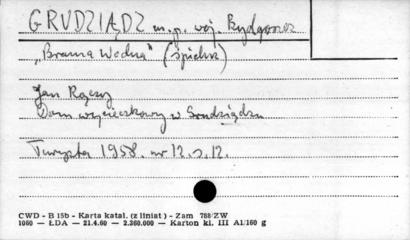 GRUDZIĄDZ m.p. woj. Bydgoszcz
"Brama Wodna" (spichrz)
Jan Rączy
Dom wycieczkowy w Grudziądzu
Turysta 1958. nr 12. s. 12.
CWD - B 15b - Karta katal. (z liniat) - Zam 788/ZW
1060 — ŁDA — 21.4.60 — 2.260.000 — Karton kl. III A1/160 g